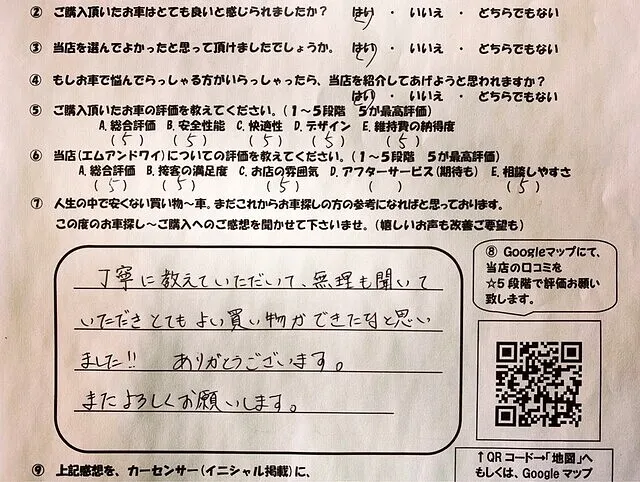 ② ご購入頂いたお車はとても良いと感じられましたか？ はい ・ いいえ ・ どちらでもない
③ 当店を選んでよかったと思って頂けましたでしょうか。 はい ・ いいえ ・ どちらでもない
④ もしお車で悩んでらっしゃる方がいらっしゃったら、当店を紹介してあげようと思われますか？
はい ・ いいえ ・ どちらでもない
⑤ ご購入頂いたお車の評価を教えてください。(1～5段階 5が最高評価)
A.総合評価 B.安全性能 C.快適性 D.デザイン E.維持費の納得度
(5) (5) (5) (5) (5)
⑥ 当店(エムアンドワイ)についての評価を教えてください。(1～5段階 5が最高評価)
A.総合評価 B.接客の満足度 C.お店の雰囲気 D.アフターサービス(期待も) E.相談しやすさ
(5) (5) (5) ( ) (5)
⑦ 人生の中で安くない買い物～車。まだこれからお車探しの方の参考になればと思っております。
この度のお車探し～ご購入へのご感想を聞かせて下さいませ。(嬉しいお声も改善ご要望も)
丁寧に教えていただいて、無理も聞いて
いただきとてもよい買い物ができたなと思い
ました!! ありがとうございます。
またよろしくお願いします。
⑧ Googleマップにて、
当店の口コミを
☆5段階で評価お願い
致します。
↑QRコード→「地図」へ
もしくは、Googleマップ
⑨ 上記感想を、カーセンサー(イニシャル掲載)に、